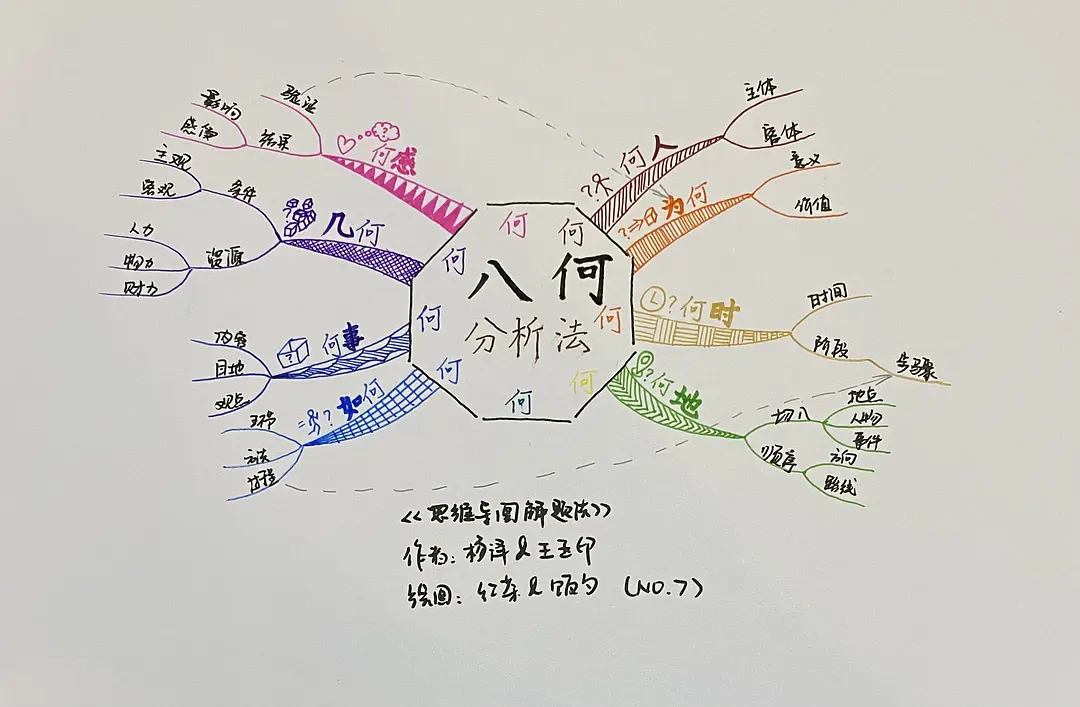 八何
分析法
何
何
何
何
何
何
何
何
?何人
主体
客体
?⇒为何
意义
价值
?何时
时间
阶段
步骤
?何地
切入
地点
人物
事件
顺序
方向
路线
?如何
环节
方法
过程
何事
?
内容
目地
观点
几何
条件
主观
客观
资源
人力
物力
财力
何感
?
验证
结果
影响
感悟
<<思维导图解题法>>
作者:杨泽&王玉印
绘图:红
(NO.7)